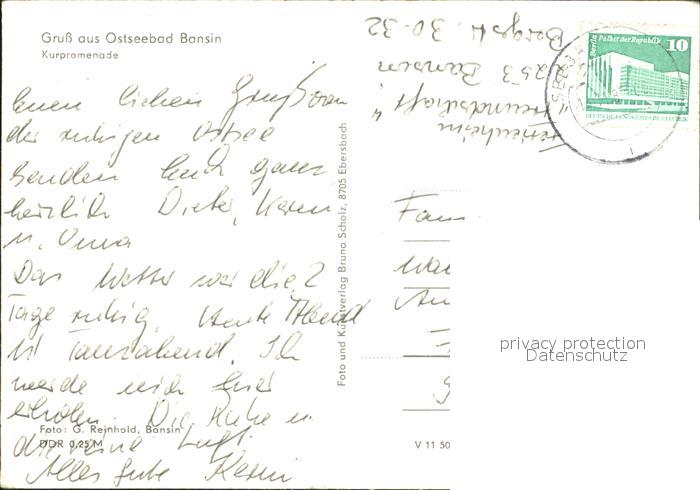 Gruß aus Ostseebad Bansin
Kurpromenade
Einen lieben Gruß von
der ruhigen Ostsee
senden Euch ganz
herzlich Dieter, Karin
u. Oma
Das Wetter war die 2
Tage ruhig. Heute Abend
ist Tanzabend. Ich
werde mich hier
erholen. Die Ruhe u.
die reine Luft.
Alles Gute Karin
Foto: G. Reinhold, Bansin
DDR 0,25 M
Foto und Kunstverlag Bruno Scholz, 8705 Ebersbach
V 11 50
Ferienheim
"Freundschaft"
2253 Bansin
Bergstr. 30-32
Berlin Palast der Republik 10
DEUTSCHE DEMOKRATISCHE REPUBLIK
Fam
privacy protection
Datenschutz